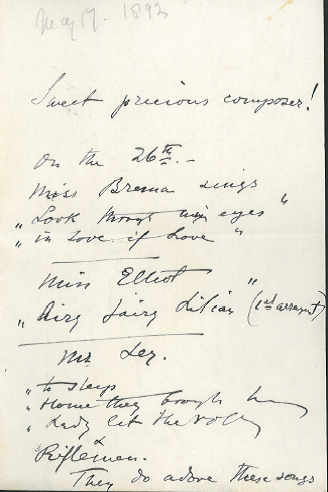 May 17. 1893
Sweet precious composer!
On the 26th.-
Miss Brema sings
"Look through my eyes"
"in Love if Love"
Miss Elliot
"Airy fairy Lilian" (1st arrangt)
Mr Ley.
"to sleep
"Home they brought her
"Lady let the
&
Riflemen.
They do adore these songs